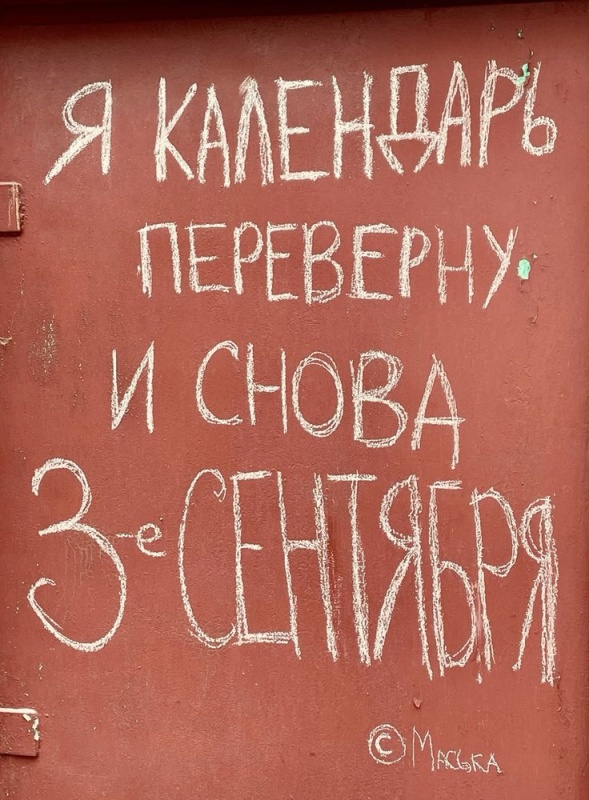 Я КАЛЕНДАРЬ
ПЕРЕВЕРНУ
И СНОВА
3-е СЕНТЯБРЯ
© Маська